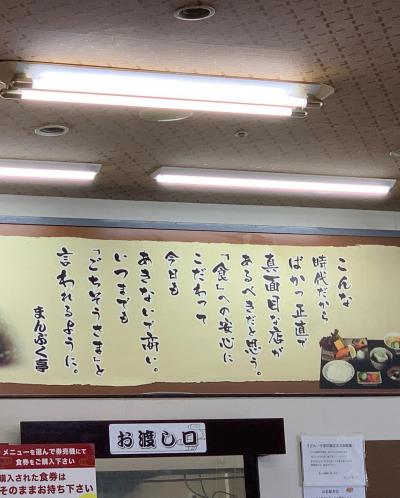 こんな
時代だから
ばかっ正直で
真面目な店が
あるべきだと思う。
「食」への安心に
こだわって
今日も
あきないで商い。
いつまでも
「ごちそうさま」と
言われるように。
まんぷく亭
お渡し口
メニューを選んで券売機にて
食券をご購入下さい
購入された食券は
そのままお持ち下さい